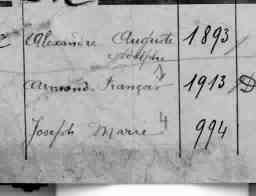 Alexandre Auguste 1893
Adolphe
Armand François 1913 D
Joseph Marie 4 994